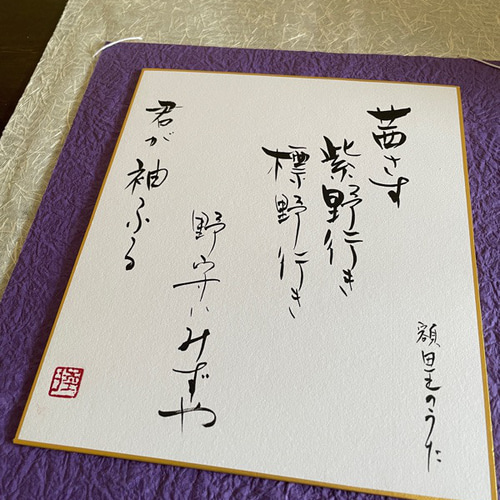 額田王のうた
茜さす
紫野行き
標野行き
野守はみずや
君が袖ふる